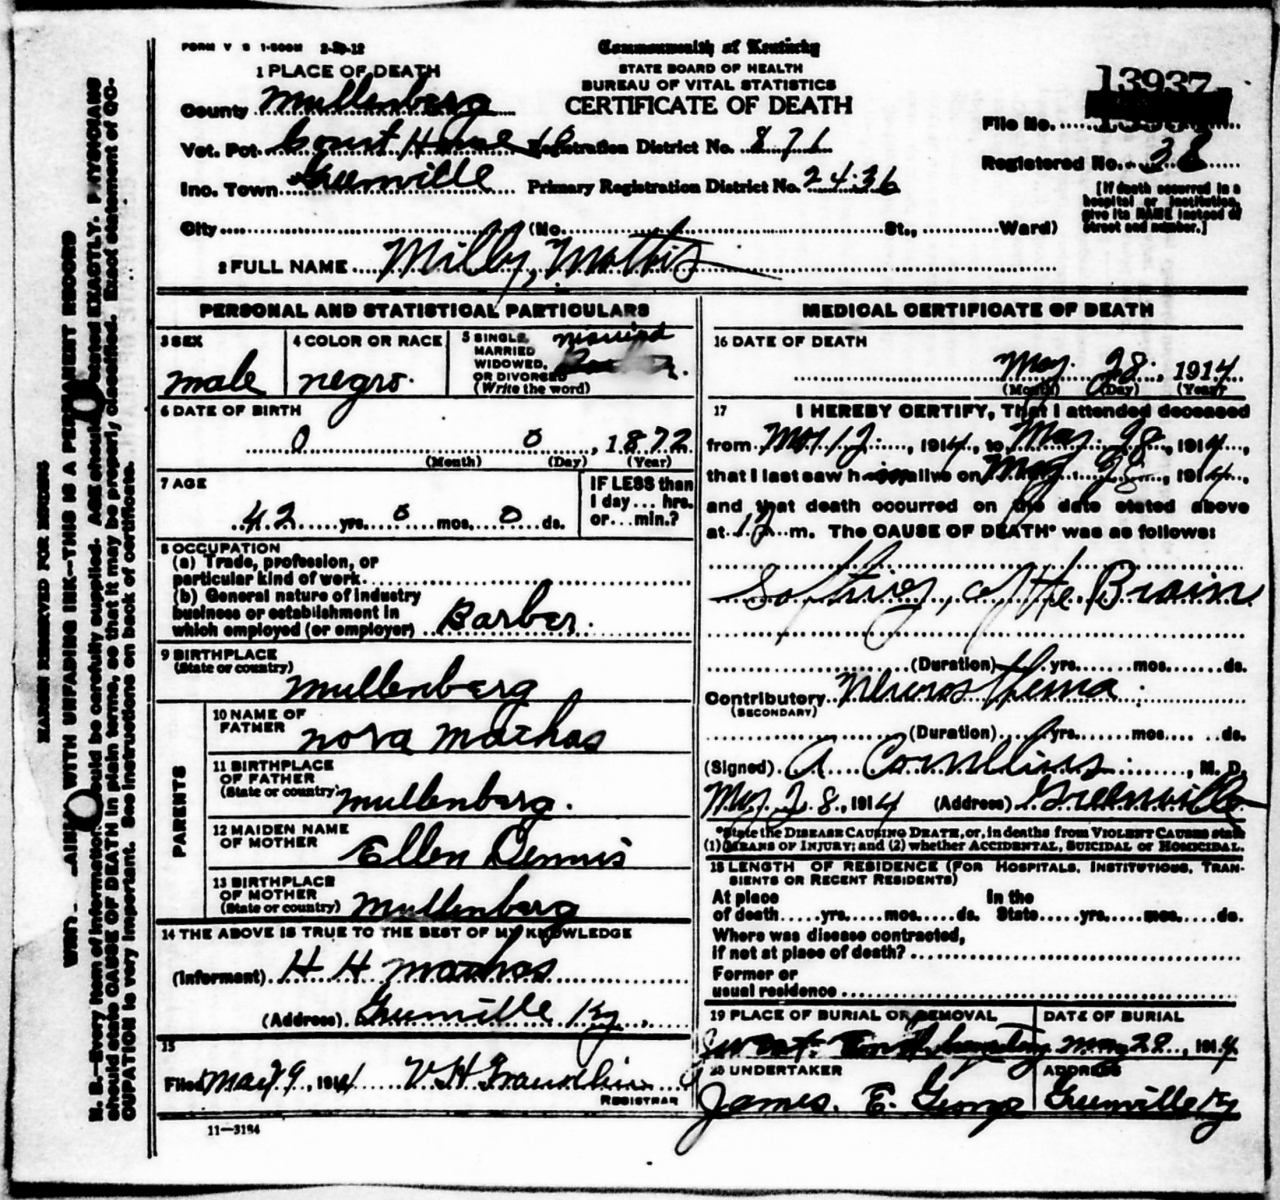 FORM V S 1-500M 2-29-12
Commonwealth of Kentucky
STATE BOARD OF HEALTH
BUREAU OF VITAL STATISTICS
CERTIFICATE OF DEATH
1 PLACE OF DEATH
County Mullenberg
Vot. Pct. Court House Registration District No. 871
Inc. Town Greenville Primary Registration District No. 2436
City (No. St., Ward)
13937
File No.
Registered No. 38
[If death occurred in a hospital or institution, give its NAME instead of Street and number.]
2 FULL NAME Milby, Mathis
PERSONAL AND STATISTICAL PARTICULARS
3 SEX male
4 COLOR OR RACE negro
5 SINGLE, MARRIED WIDOWED, OR DIVORCED (Write the word) married
6 DATE OF BIRTH
0 0, 1872
(Month) (Day) (Year)
7 AGE
42 yrs. 0 mos. 0 ds.
IF LESS than 1 day... hrs. or... min.?
8 OCCUPATION
(a) Trade, profession, or particular kind of work
(b) General nature of industry business or establishment in which employed (or employer) Barber
9 BIRTHPLACE
(State or country) Mullenberg
PARENTS
10 NAME OF FATHER nora mathas
11 BIRTHPLACE OF FATHER (State or country) mullenberg.
12 MAIDEN NAME OF MOTHER Ellen Dennis
13 BIRTHPLACE OF MOTHER (State or country) Mullenberg
14 THE ABOVE IS TRUE TO THE BEST OF MY KNOWLEDGE
(Informant) H H mathas
(Address) Greenville Ky.
15
Filed May 29, 1914 V. H.
REGISTRAR
11—3184
MEDICAL CERTIFICATE OF DEATH
16 DATE OF DEATH
May 28, 1914
(Month) (Day) (Year)
17 I HEREBY CERTIFY, That I attended deceased
from 12, 1914, to May 28, 1914,
that I last saw him alive on May 28, 1914,
and that death occurred on the date stated above
at 12 m. The CAUSE OF DEATH* was as follows:
Softning of the Brain
(Duration) yrs. mos. ds.
Contributory
(SECONDARY)
(Duration) yrs. mos. ds.
(Signed) A Cornellius, M. D.
May 28, 1914 (Address) Greenville
*State the DISEASE CAUSING DEATH, or, in deaths from VIOLENT CAUSES state
(1) MEANS OF INJURY; and (2) whether ACCIDENTAL, SUICIDAL or HOMICIDAL.
18 LENGTH OF RESIDENCE (FOR HOSPITALS, INSTITUTIONS, TRANSIENTS OR RECENT RESIDENTS)
At place of death yrs. mos. ds. In the State yrs. mos. ds.
Where was disease contracted, if not at place of death?
Former or usual residence
19 PLACE OF BURIAL OR REMOVAL
West End
DATE OF BURIAL
May 28, 1914
20 UNDERTAKER
James. E. George
ADDRESS
Greenville Ky
MARGIN RESERVED FOR BINDING
WITH UNFADING INK—THIS IS A PERMANENT RECORD
N. B.—Every item of information should be carefully supplied. AGE should be stated EXACTLY. PHYSICIANS
should state CAUSE OF DEATH in plain terms, so that it may be properly classified. Exact statement of OC-
CUPATION is very important. See instructions on back of certificate.